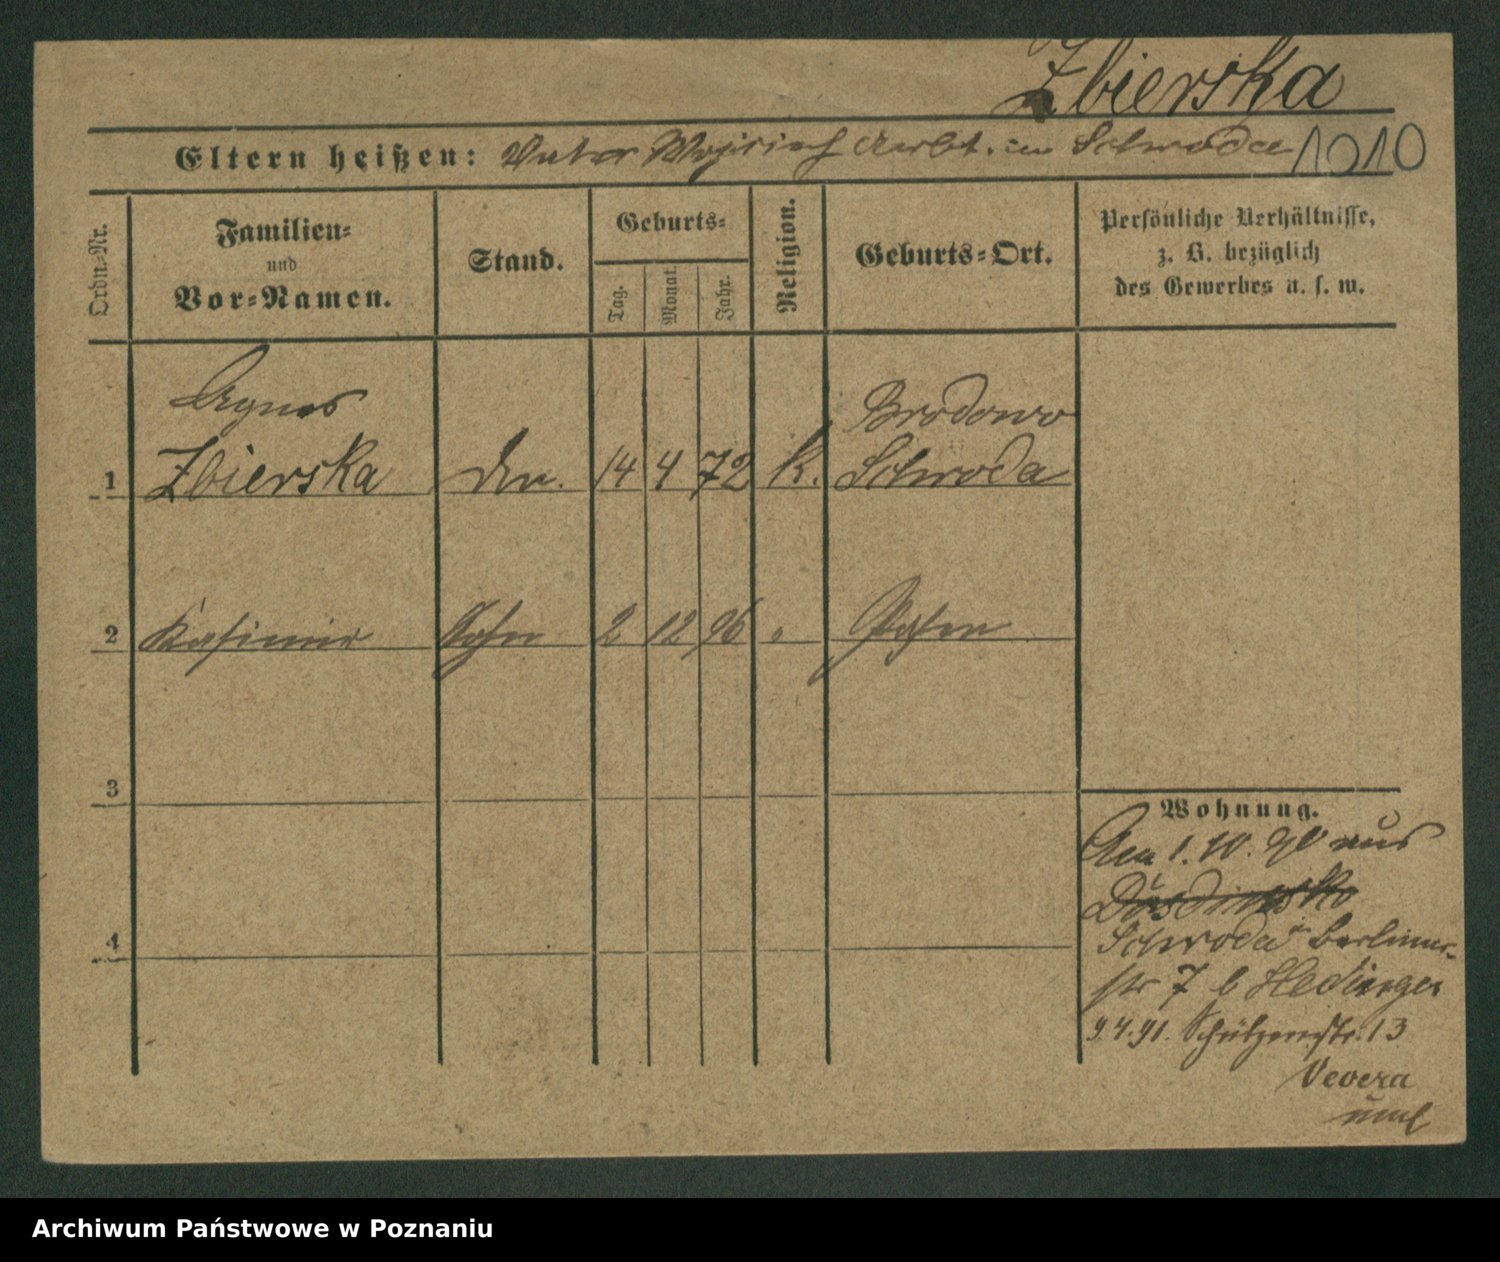 Zbierska
Eltern heißen: Vater Wojciech Arbt. in Schroda 1010
Ordn-Nr.
Familien-
und
Vor-Namen.
Stand.
Geburts-
Tag.
Monat.
Jahr.
Religion.
Geburts-Ort.
Persönliche Verhältnisse,
z. B. bezüglich
des Gewerbes u. s. w.
Agnes Brodowo
1 Zbierska 14 4 72 k. Schroda
2 Kasimir Sohn 2 12 96 " Posen
3
4
Wohnung.
Am 1. 10. 90 aus
Schroda Berliner-
str 7 b
9.4.91. Schützenstr. 13